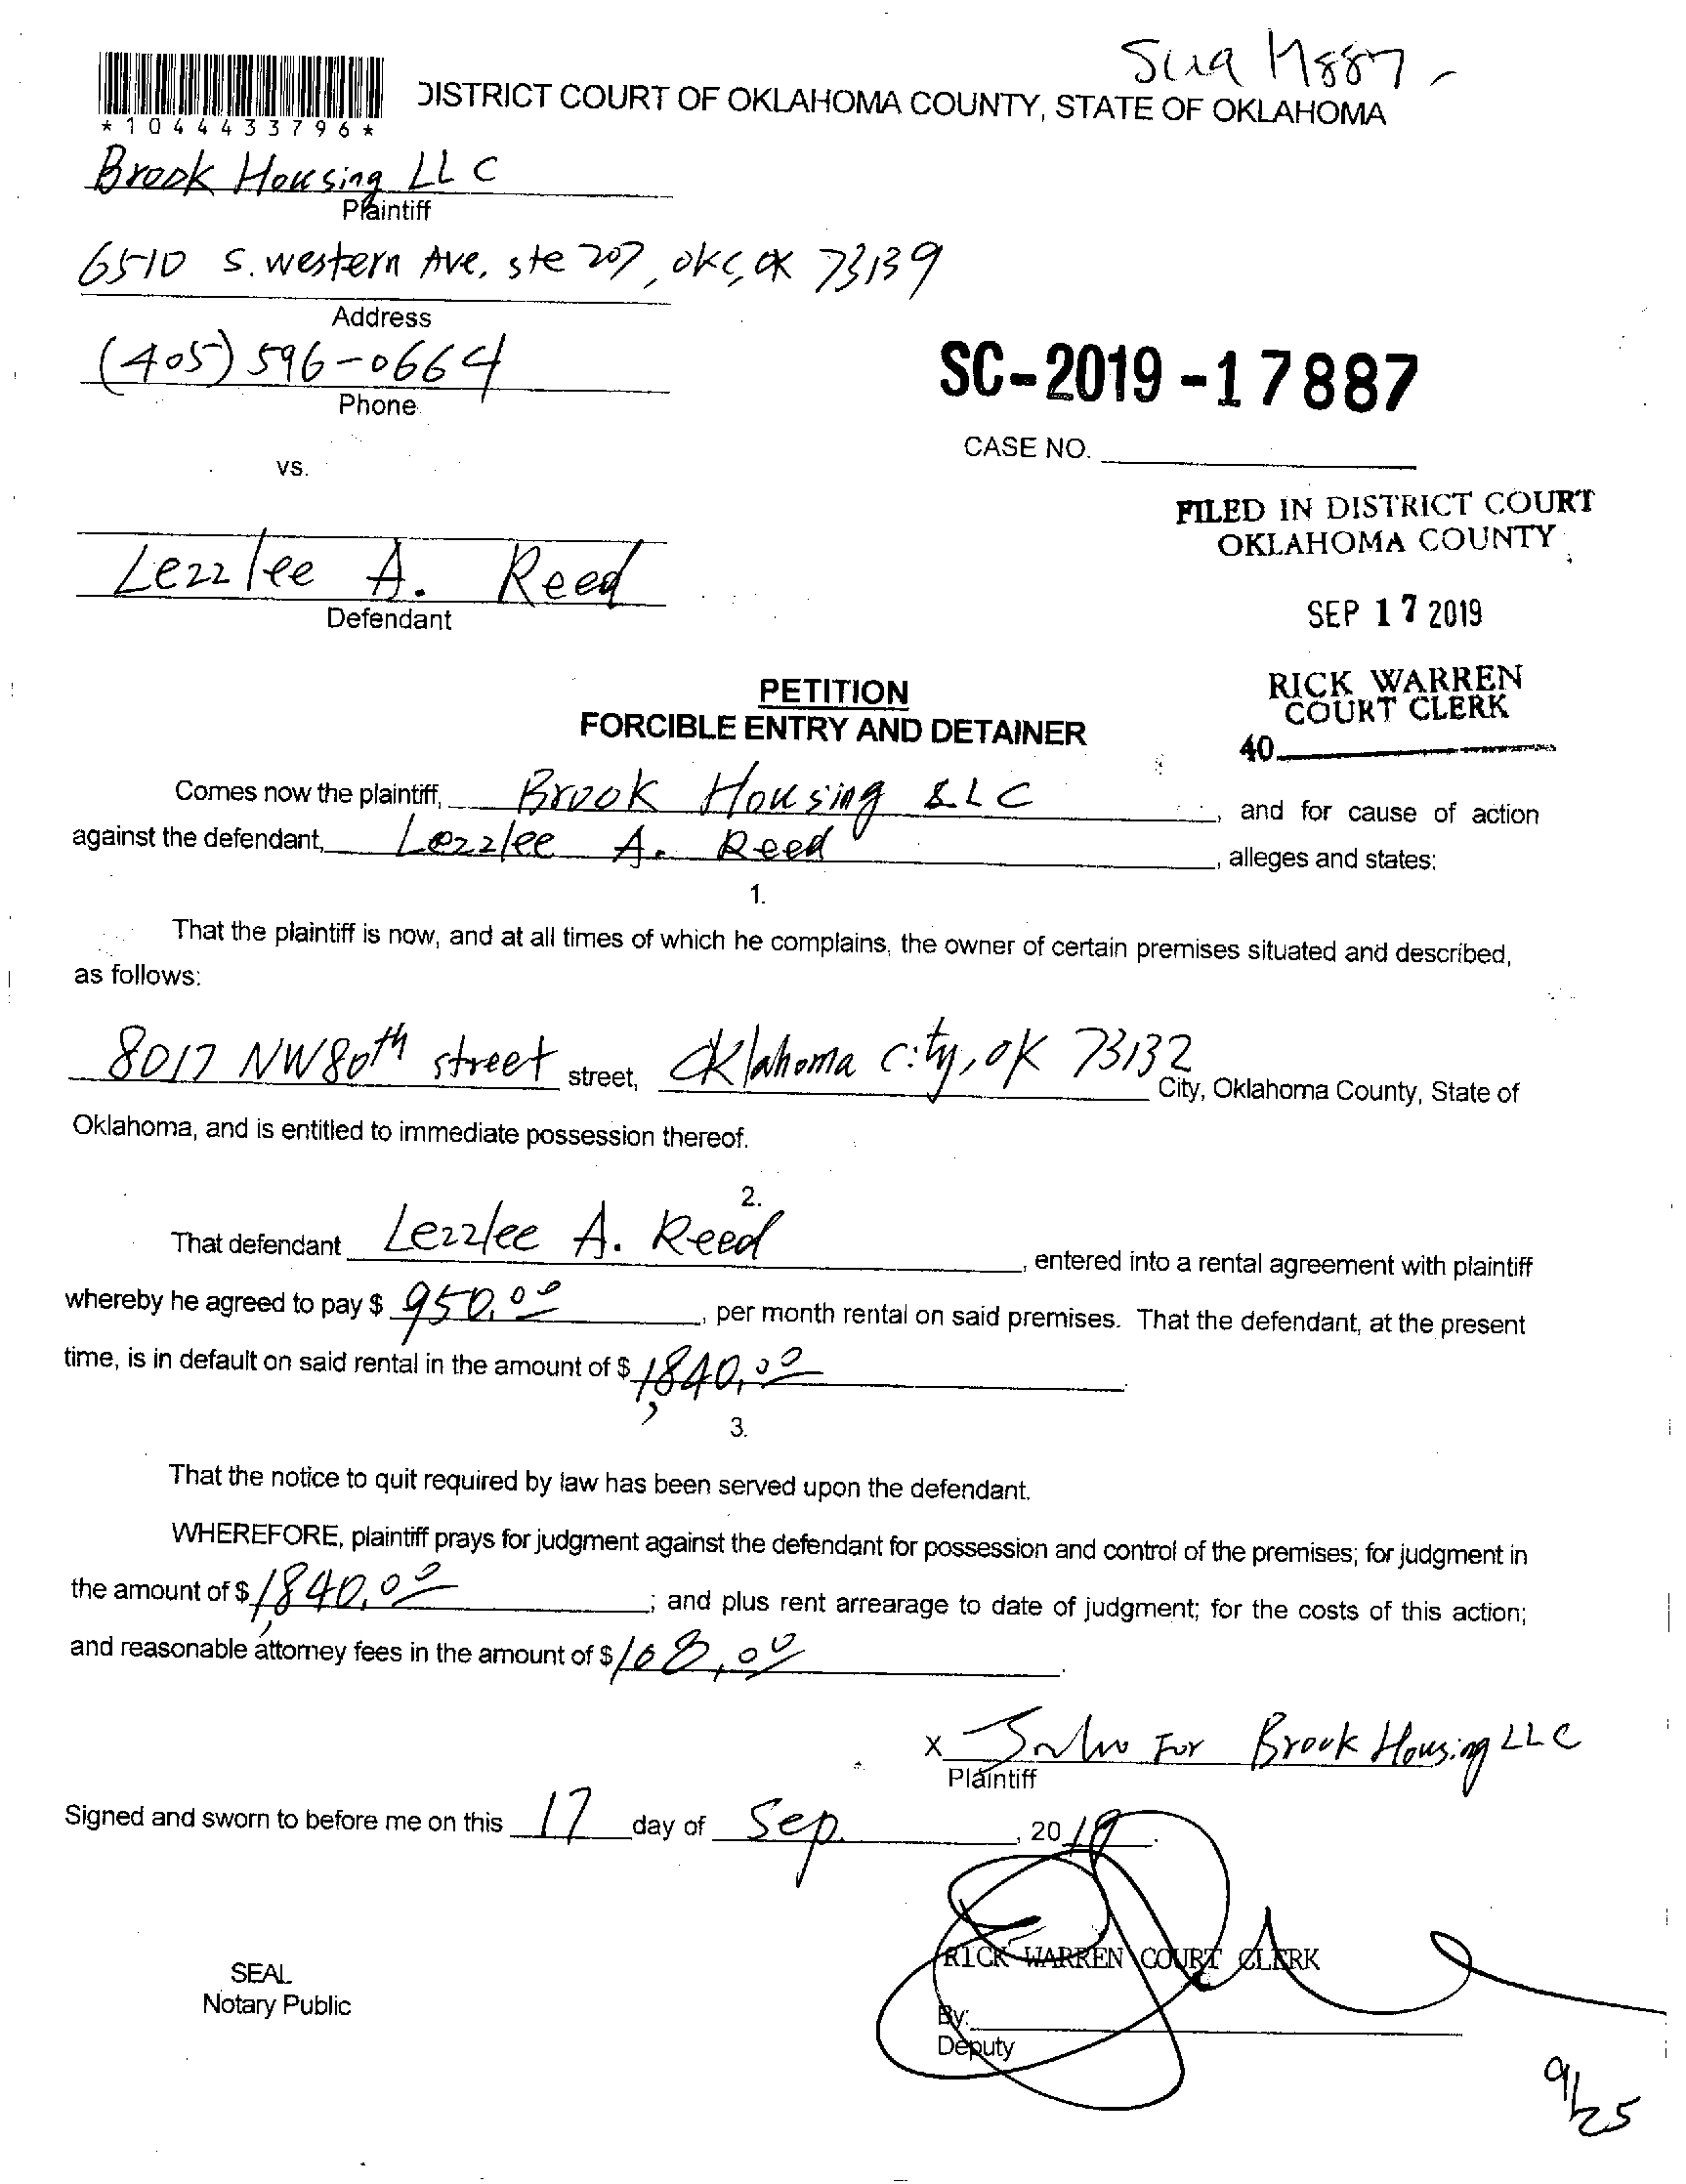 *1044433796*
DISTRICT COURT OF OKLAHOMA COUNTY, STATE OF OKLAHOMA
Brook Housing LLC
Plaintiff
6510 S. western Ave, ste 207, OKC, OK 73139
Address
(405) 596-0664
Phone
SC-2019-17887
CASE NO.
vs.
FILED IN DISTRICT COURT
OKLAHOMA COUNTY
Lezzlee A. Reed
Defendant
SEP 17 2019
RICK WARREN
COURT CLERK
40
PETITION
FORCIBLE ENTRY AND DETAINER
Comes now the plaintiff, Brook Housing LLC, and for cause of action
against the defendant, Lezzlee A. Reed, alleges and states:
1.
That the plaintiff is now, and at all times of which he complains, the owner of certain premises situated and described,
as follows:
8017 NW 80th street street, Oklahoma City, OK 73132 City, Oklahoma County, State of
Oklahoma, and is entitled to immediate possession thereof.
2.
That defendant Lezzlee A. Reed, entered into a rental agreement with plaintiff
whereby he agreed to pay $ 950.00, per month rental on said premises. That the defendant, at the present
time, is in default on said rental in the amount of $ 1,840.00
3.
That the notice to quit required by law has been served upon the defendant.
WHEREFORE, plaintiff prays for judgment against the defendant for possession and control of the premises; for judgment in
the amount of $ 1,840.00; and plus rent arrearage to date of judgment; for the costs of this action;
and reasonable attorney fees in the amount of $ 168.00.
X For Brook Housing LLC
Plaintiff
Signed and sworn to before me on this 17 day of Sep., 2019.
RICK WARREN COURT CLERK
SEAL
Notary Public
By:
Deputy
9/25